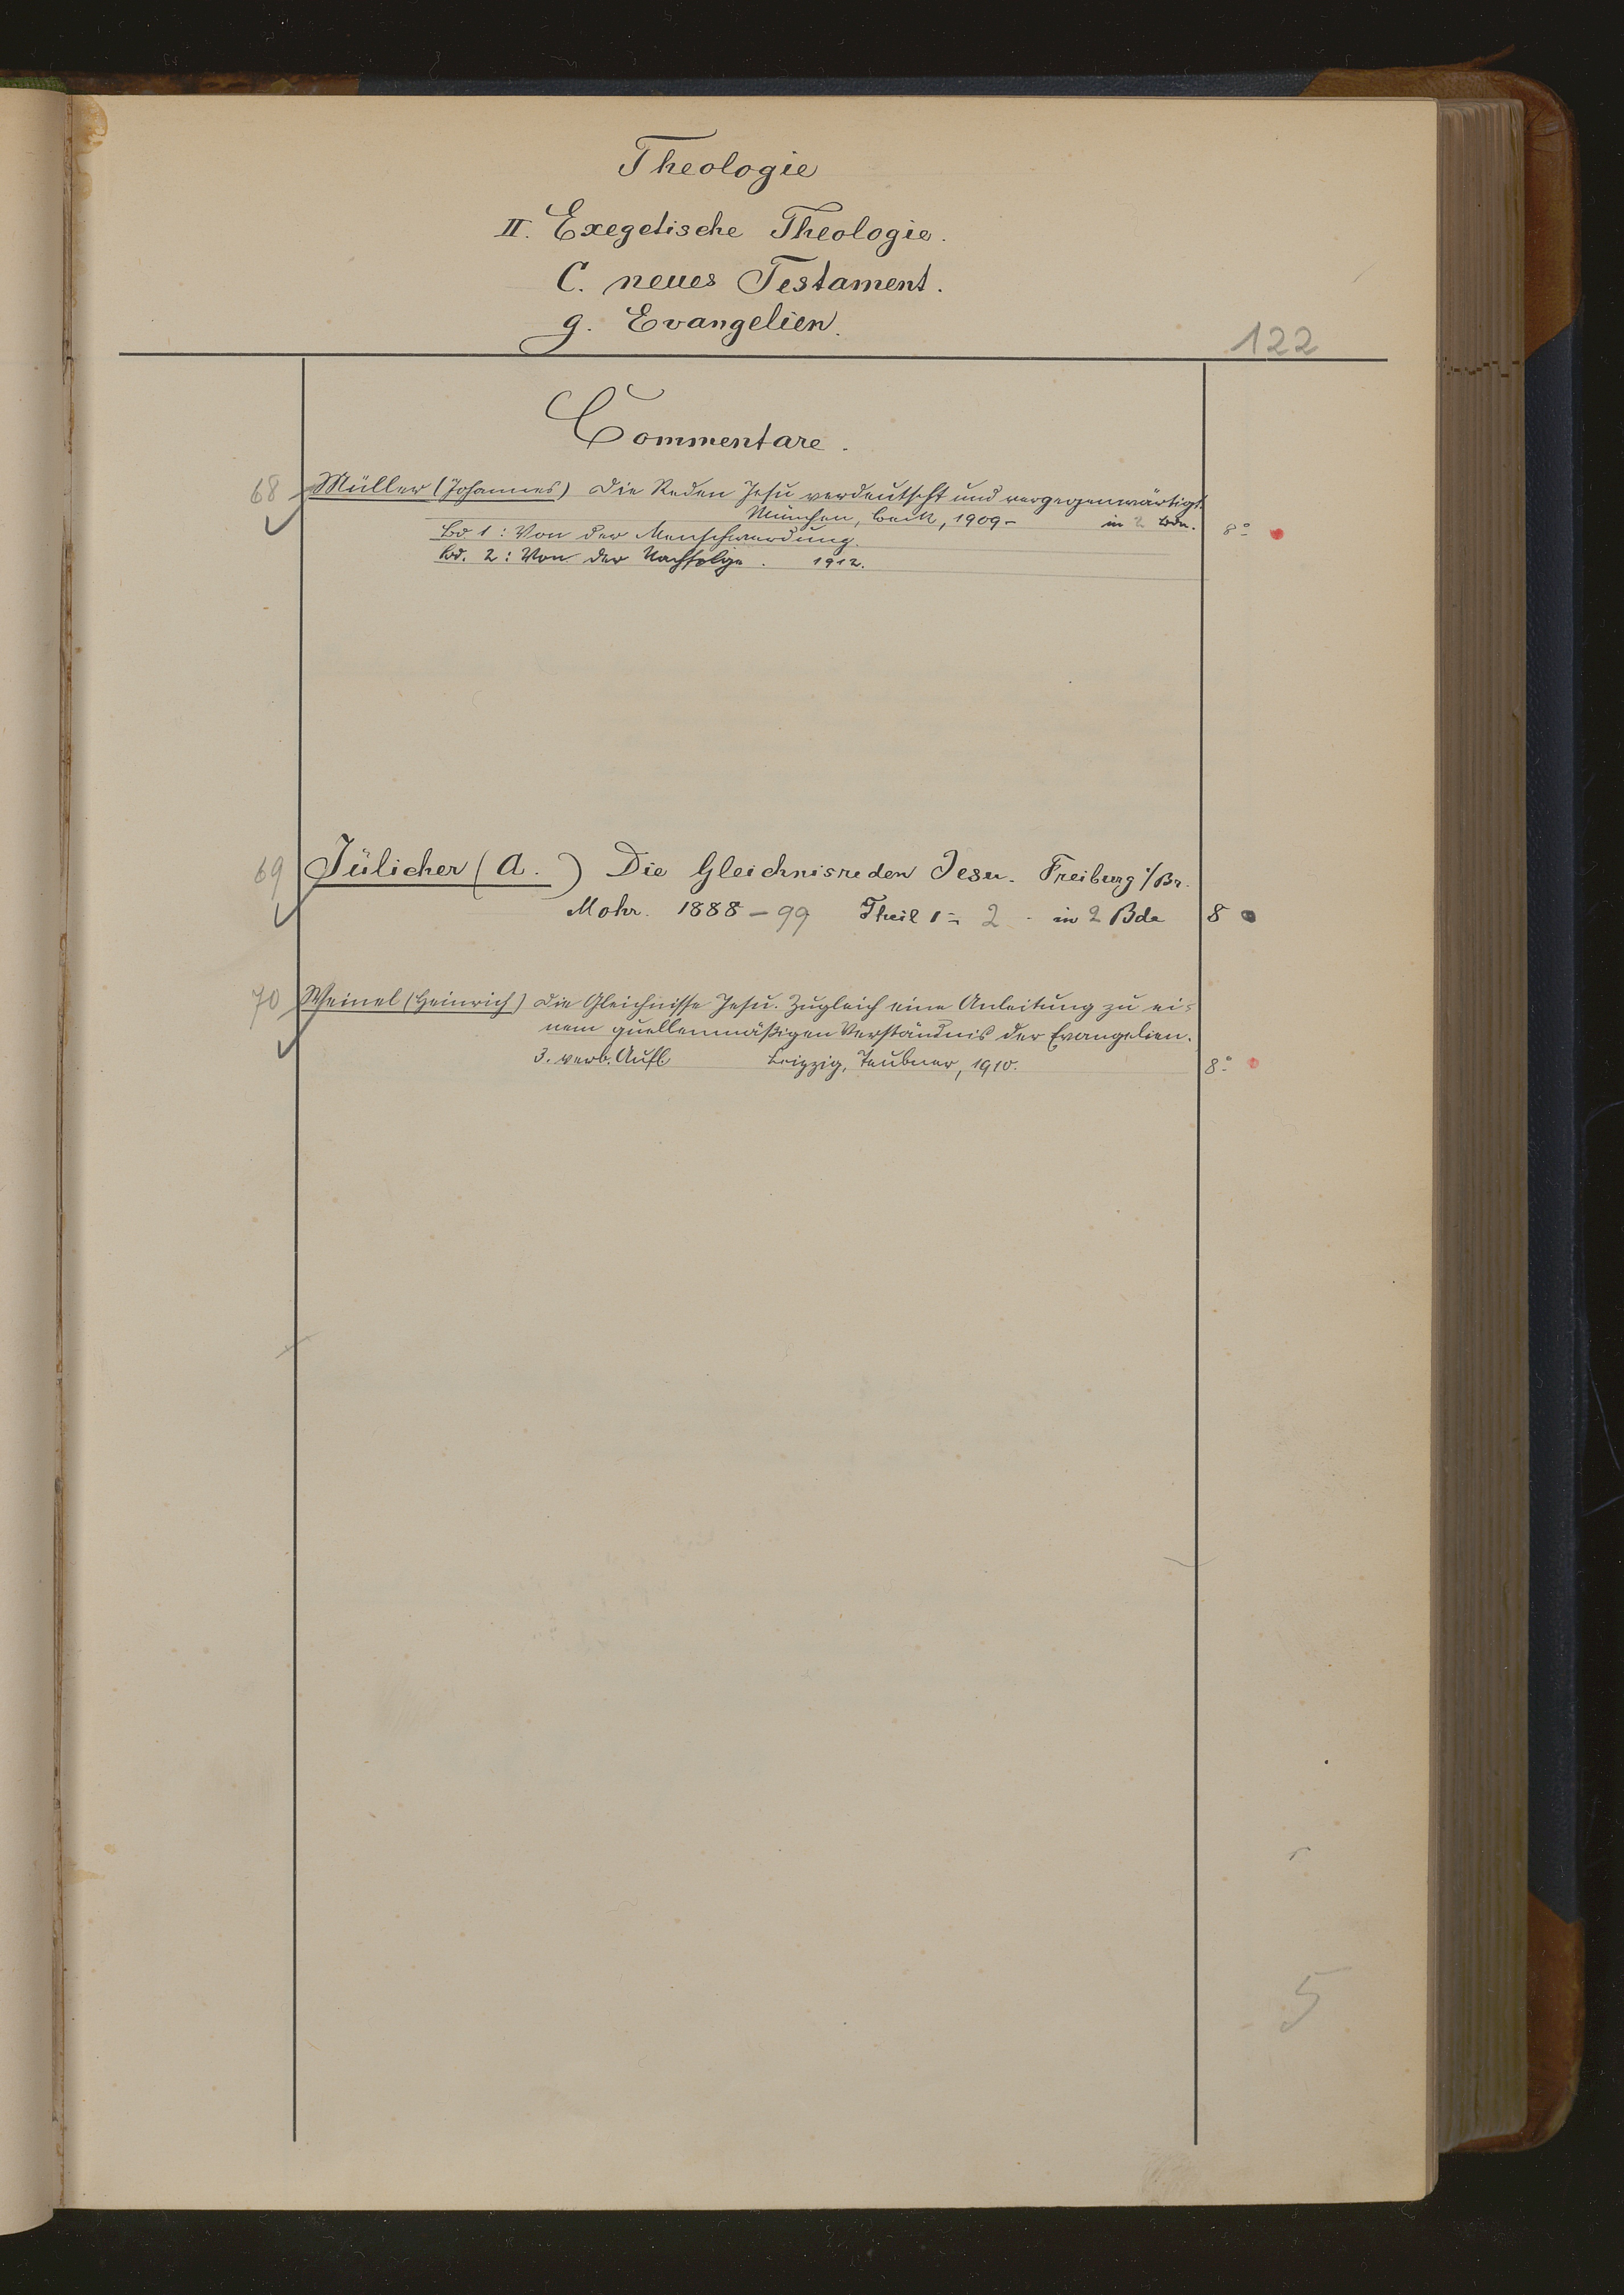 Theologie
II. Exegetische Theologie.
C. neues Testament.
g. Evangelien.
122
Commentare.
68 Müller (Johannes) Die Reden Jesu verdeutscht und vergegenwärtigt.
München, Beck, 1909- in 2 Bdn. 8°
Bd. 1: Von der Menschwerdung.
Bd. 2: Von der Nachfolge. 1912.
69 Jülicher (A. ) Die Gleichnisreden Jesu. Freiburg i/Br.
Mohr. 1888-99 Theil 1 = 2 - in 2 Bde 8
70 Weinel (Heinrich) Die Gleichnisse Jesu. Zugleich eine Anleitung zu ei-
nem quellenmäßigen Verständnis der Evangelien.
3. verb. Aufl Leipzig, Teubner, 1910. 8°
5